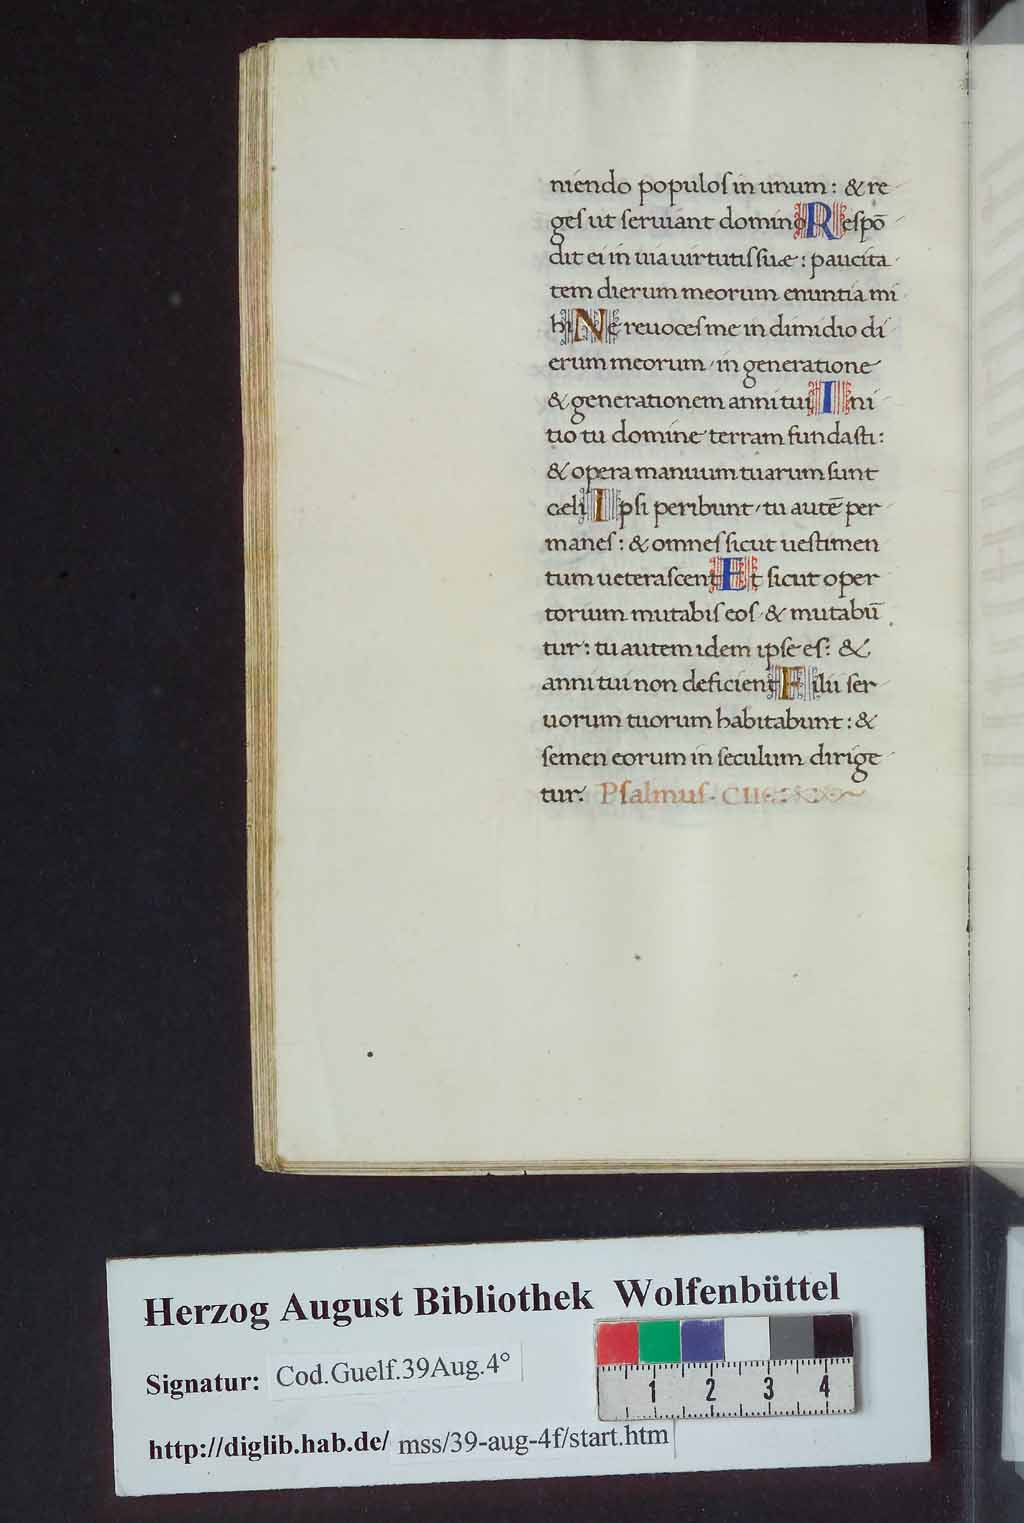 niendo populoſ in unum : & re
geſ ut ſeruiant domino Reſpō
dit ei in uia uirtutiſ ſuæ : paucita
tem dierum meorum enuntia mi
hi Ne reuoceſ me in dimidio di
erum meorum in generatione
& generationem anni tui Ini
tio tu domine terram fundaſti :
& opera manuum tuarum ſunt
cæli Ipſi peribunt tu autē per
maneſ : & omneſ ſicut ueſtimen
tum ueteraſcent Et ſicut oper
torium mutabiſ eoſ & mutabū
tur : tu autem idem ipſe eſ : &
anni tui non deficient Filii ſer
uorum tuorum habitabunt : &
ſemen eorum in ſeculum dirige
tur. Pſalmuſ. CII
Herzog August Bibliothek Wolfenbüttel
Signatur: Cod.Guelf.39Aug.4°
1 2 3 4
http://diglib.hab.de/ mss/39-aug-4f/start.htm